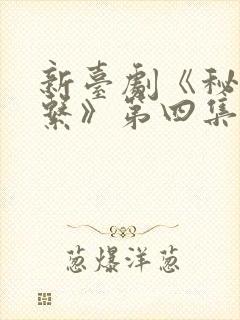 新臺劇《秘
繫》第四集
葱爆洋葱